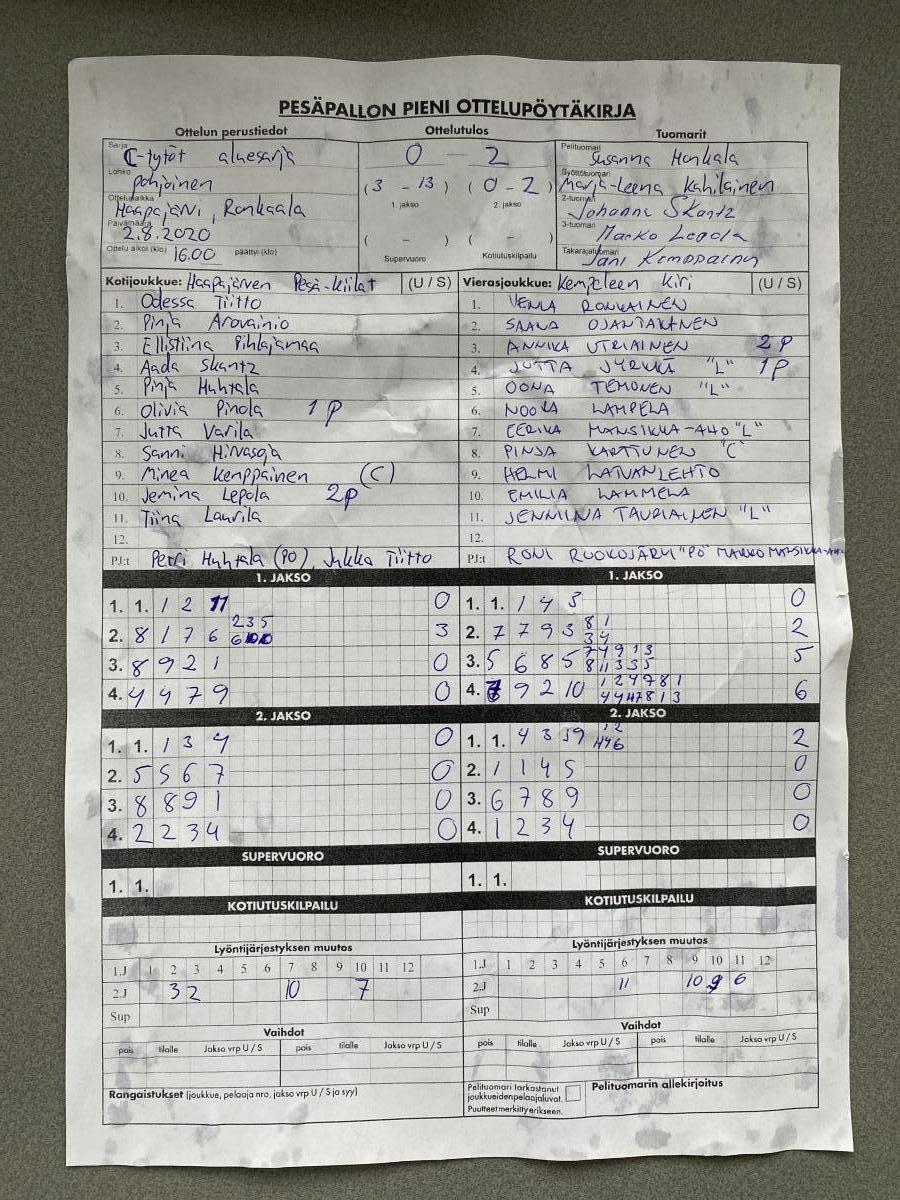 PESÄPALLON PIENI OTTELUPÖYTÄKIRJA
Ottelun perustiedot
Sarja C-tytöt aluesarja
Lohko Pohjoinen
Ottelupaikka Haapajärvi, Ronkaala
Päivämäärä 2.8.2020
Ottelu alkoi (klo) 16.00 päättyi (klo)
Ottelutulos
0 - 2
(3 - 13) (0 - 2)
1. jakso 2. jakso
( - ) ( - )
Supervuoro Kotiutuskilpailu
Tuomarit
Pelituomari Susanna Honkala
Syöttötuomari Marja-Leena Kahilainen
2-tuomari Johanna Skantz
3-tuomari Marko Lepola
Takarajatuomari Jani Kemppainen
Kotijoukkue: Haapajärven Pesä-Kiilat (U / S)
1. Odessa Tiitto
2. Pinja Arovainio
3. Ellistiina Pihlajamaa
4. Aada Skantz
5. Pinja Huhtala
6. Olivia Pinola 1P
7. Jutta Varila
8. Sanni Hirvasoja
9. Minea Kemppainen (C)
10. Jemina Lepola 2P
11. Tiina Laurila
12.
PJ:t Petri Huhtala (PO), Jukka Tiitto
Vierasjoukkue: Kempeleen Kiri (U / S)
1. VENLA RONKAINEN
2. SAANA OJANTAKANEN
3. ANNIKA UTRIAINEN 2P
4. JUTTA JYRKKÄ "L" 1P
5. OONA TEMONEN "L"
6. NOORA LAMPELA
7. EERIKA MANSIKKA-AHO "L"
8. PINJA KARTTUNEN "C"
9. HELMI LAIVANLEHTO
10. EMILIA LAMMELA
11. JENNIINA TAURIAINEN "L"
12.
PJ:t RONI RUOKOJÄRVI "PÖ" MARKO MANSIKKA-AHO
1. JAKSO
1. 1. 1 2 11 0
2. 8 1 7 6 2 3 5 3
3. 8 9 2 1 0
4. 4 4 7 9 0
2. JAKSO
1. 1. 1 3 4 0
2. 5 5 6 7 0
3. 8 8 9 1 0
4. 2 2 3 4 0
SUPERVUORO
1. 1.
KOTIUTUSKILPAILU
1. JAKSO
1. 1. 1 4 3 0
2. 7 7 9 3 8 1 3 4 2
3. 5 6 8 5 7 4 9 1 3 8 11 3 3 5 5
4. 9 2 10 1 2 4 7 8 1 6
2. JAKSO
1. 1. 4 3 5 9 1 2 2
2. 1 1 4 5 0
3. 6 7 8 9 0
4. 1 2 3 4 0
SUPERVUORO
1. 1.
KOTIUTUSKILPAILU
Lyöntijärjestyksen muutos
1.J 1 2 3 4 5 6 7 8 9 10 11 12
2.J 3 2 10 7
Sup
Vaihdot
pois tilalle Jakso vrp U / S pois tilalle Jakso vrp U / S
Lyöntijärjestyksen muutos
1.J 1 2 3 4 5 6 7 8 9 10 11 12
2.J 11 10 9 6
Sup
Vaihdot
pois tilalle Jakso vrp U / S pois tilalle Jakso vrp U / S
Rangaistukset (joukkue, pelaaja nro, jakso vrp U / S ja syy)
Pelituomari tarkastanut
joukkueiden pelaajaluvat.
Puutteet merkitty erikseen.
Pelituomarin allekirjoitus